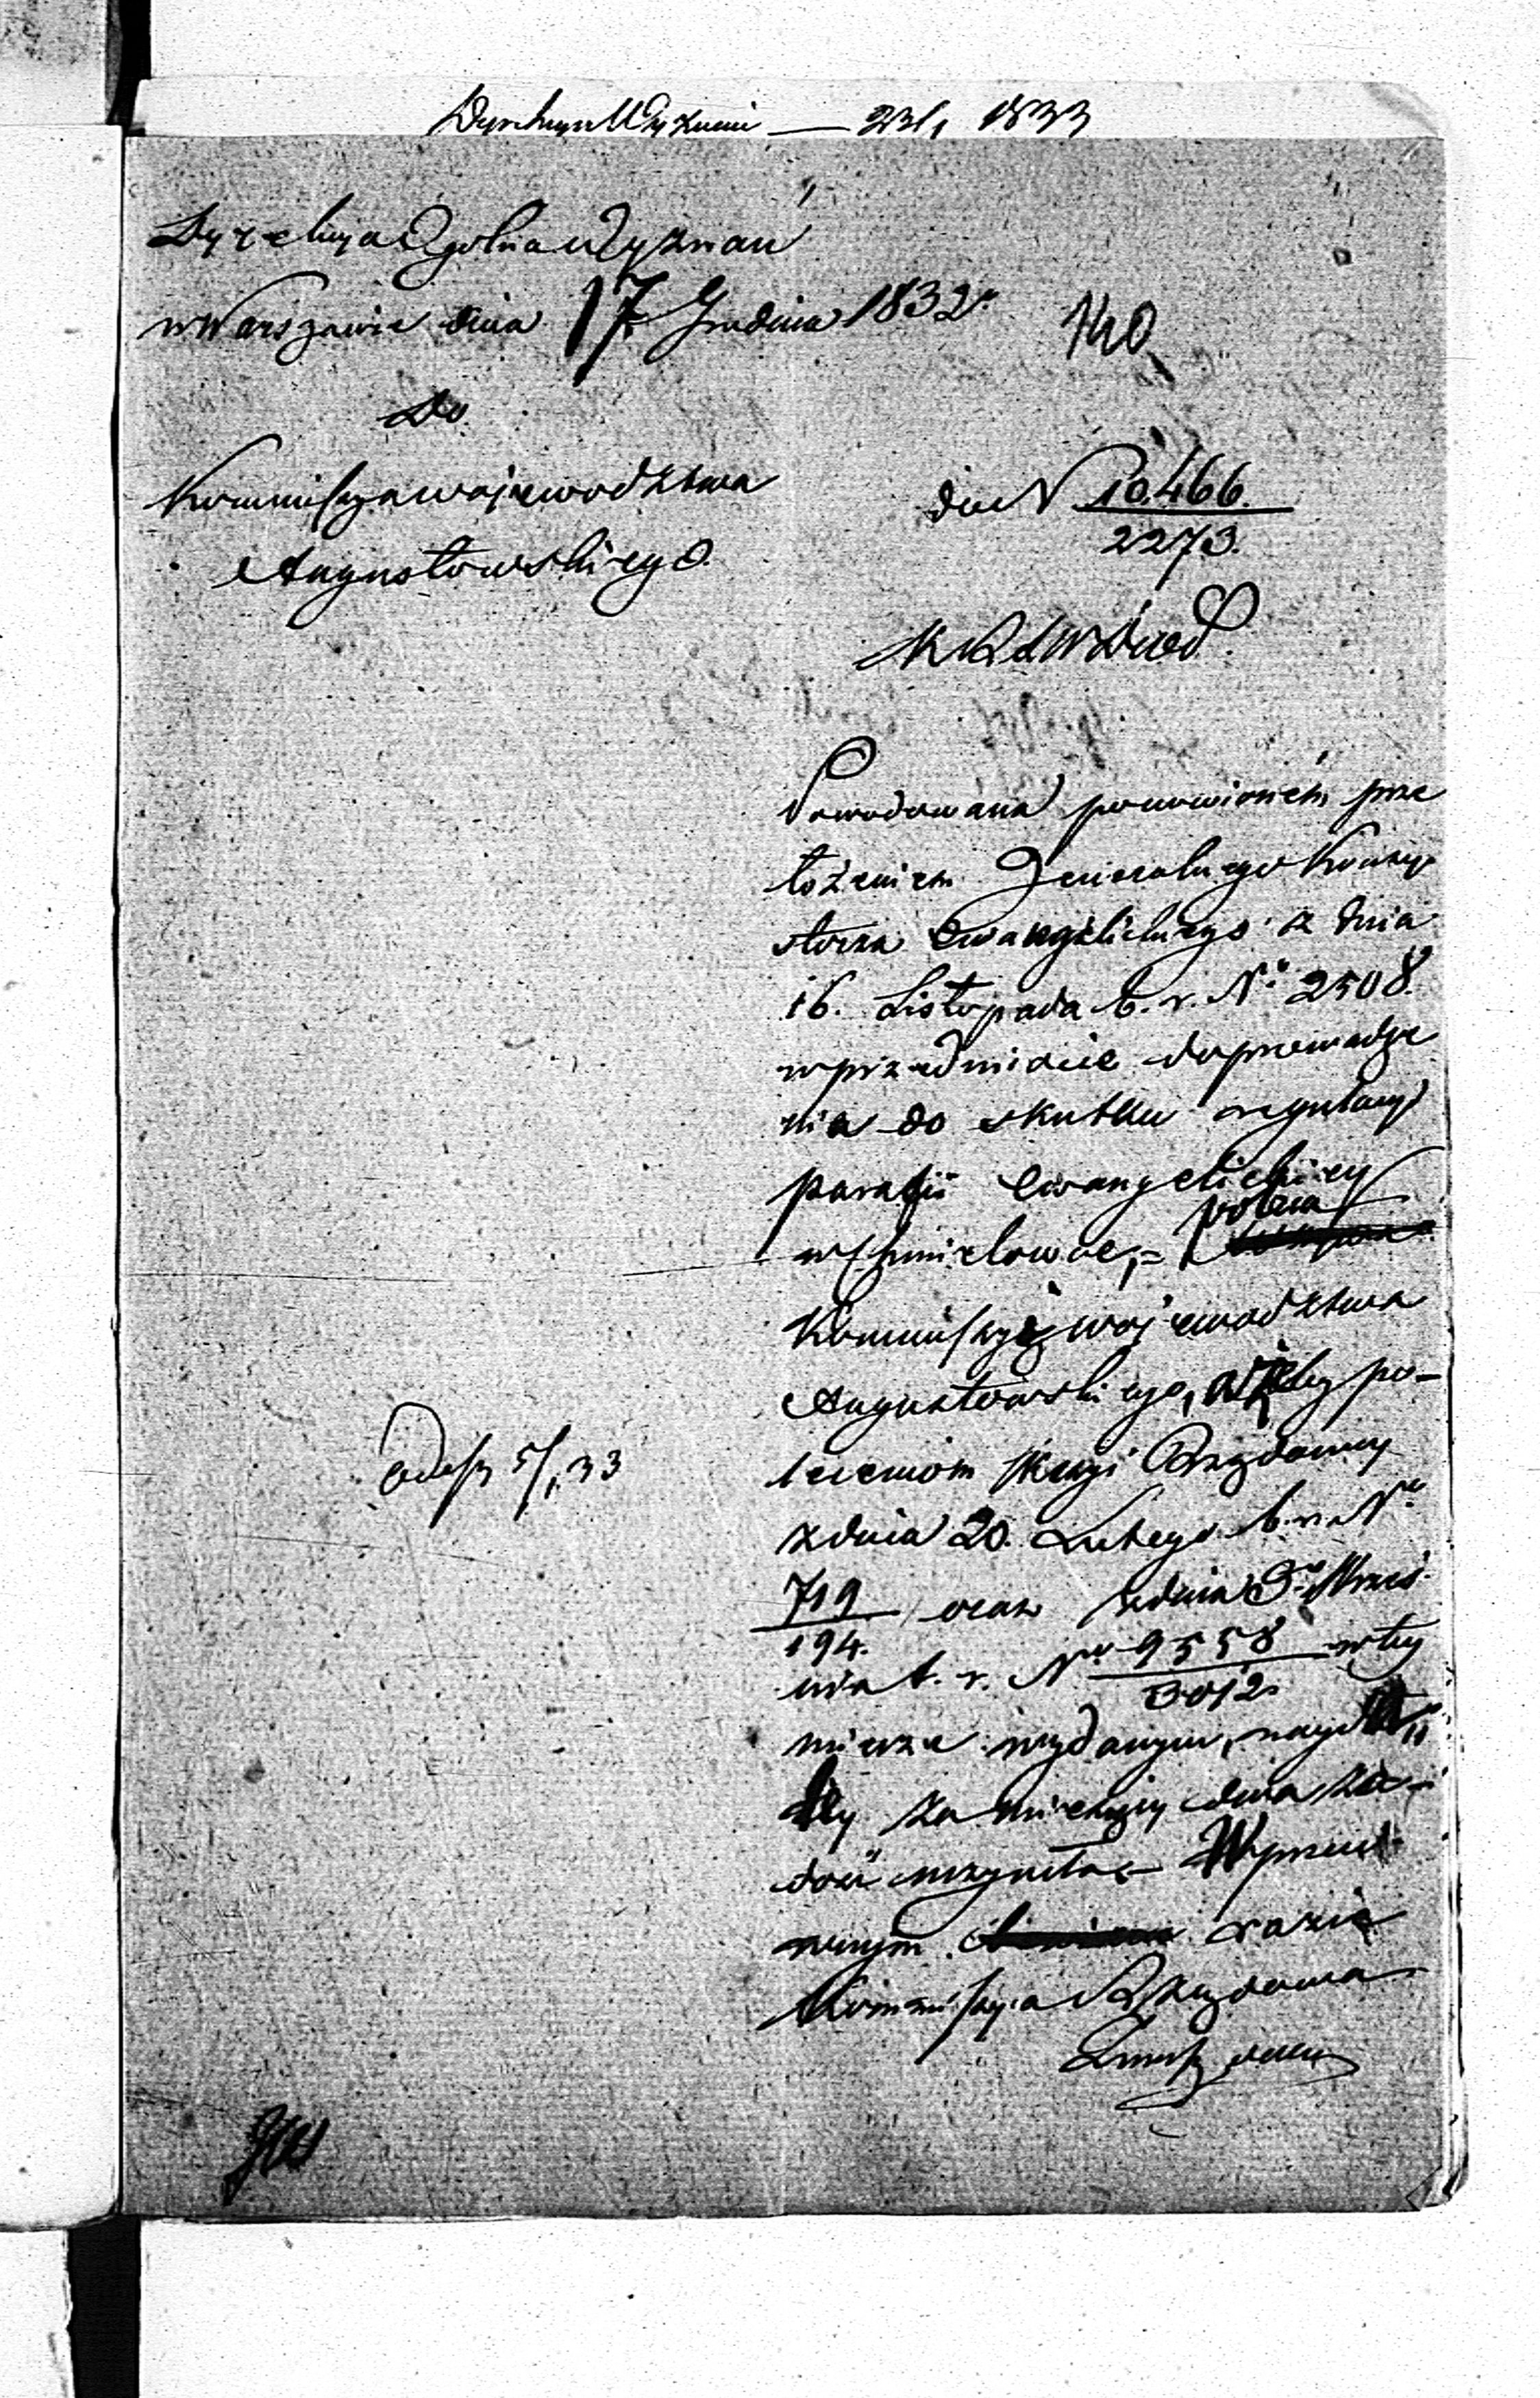 Dyrekcya Wyznań — 23/1 1833
Dyrekcya Ogólna Wyznań
w Warszawie dnia 17 Grudnia 1832 r
140
Do
Kommissyi Województwa
Augustowskiego.
do N 10,466.
2273.
K R S W D i O P.
Powodowana ponowioném prze
łożeniem Jeneralnego Konsy
storza Ewangelickiego z dnia
16. Listopada b. r. N° 2508.
w przedmiocie doprowadze
nia do skutku regulacyi
parafii Ewangelickiey
w Chmielowce, = poleca
Kommissyi Województwa
Augustowskiego, ażeby po-
leceniom Kommissyi Rządowey
z dnia 20. Lutego b. r. N°
719
194. oraz z dnia 3° Wrześ
nia b. r. N° 9558
3012 w tey
mierze wydanym, nayda
ley za miesięcy dwa za-
dość uczyniła. — W przeci
wnym razie
Kommissya Rządowa
odesz 5/1 33